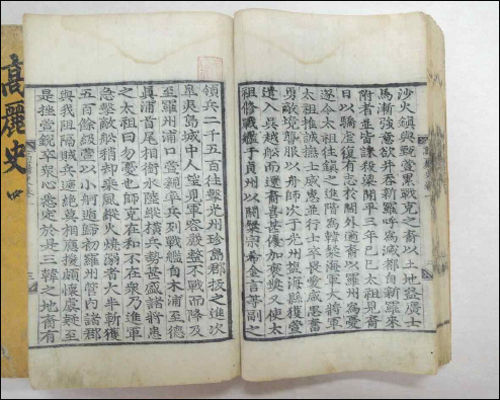 沙火鎭與甄萱累戰克之裔以土地益廣士
馬漸强意欲幷呑新羅呼爲滅都自新羅來
附者並皆誅殺梁開平三年己巳太祖見裔
日以驕虐復有志於閫外適裔以羅州爲憂
遂令太祖往鎭之進階爲韓粲海軍大將軍
太祖推誠撫士威惠並行士卒畏愛咸思奮
勇敵境讋服以舟師次于光州塩海縣獲萱
遣入吳越船而還裔喜甚優加褒奬又使太
祖修戰艦于貞州以閼粲宗希金言等副之
領兵二千五百往擊光州珍島郡拔之進次
皐夷島城中人望見軍容嚴整不戰而降及
至羅州浦口萱親率兵列戰艦自木浦至德
眞浦首尾相銜水陸縱橫兵勢甚盛諸將患
之太祖曰勿憂也師克在和不在衆乃進軍
急擊敵船稍却乘風縱火燒溺者大半斬獲
五百餘級萱以小舸遁歸初羅州管內諸郡
與我阻隔賊兵遮絶莫相應援頗懷虞疑至
是挫萱銳卒衆心悉定於是三韓之地裔有
高麗史 四